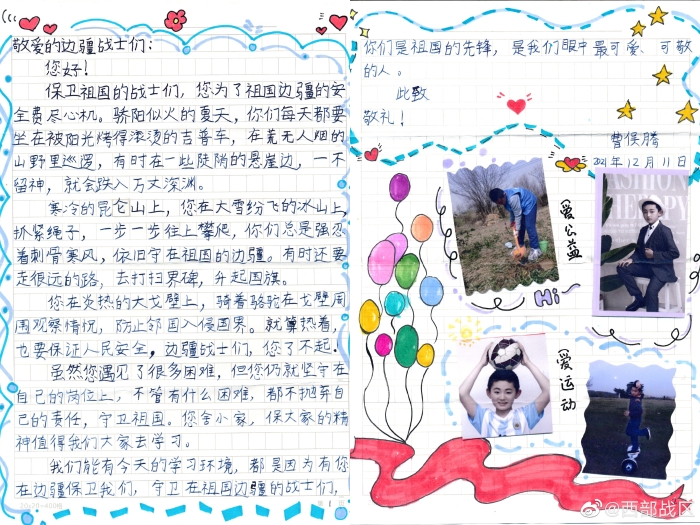 敬爱的边疆战士们：
您好！
保卫祖国的战士们，您为了祖国边疆的安
全费尽心机。骄阳似火的夏天，你们每天都要
坐在被阳光烤得滚烫的吉普车，在荒无人烟的
山野里巡逻，有时在一些陡峭的悬崖边，一不
留神，就会跌入万丈深渊。
寒冷的昆仑山上，您在大雪纷飞的冰山上，
抓紧绳子，一步一步往上攀爬，你们总是强忍
着刺骨寒风，依旧守在祖国的边疆。有时还要
走很远的路，去打扫界碑，升起国旗。
您在炎热的大戈壁上，骑着骆驼在戈壁周
围观察情况，防止邻国入侵国界。就算热着，
也要保证人民安全，边疆战士们，您了不起！
虽然您遇见了很多困难，但您仍就坚守在
自己的岗位上，不管有什么困难，都不抛弃自
己的责任，守卫祖国。您舍小家，保大家的精
神值得我们大家去学习。
我们能有今天的学习环境，都是因为有您
在边疆保卫我们，守卫在祖国边疆的战士们，
你们是祖国的先锋，是我们眼中最可爱、可敬
的人。
此致
敬礼！
曹侯腾
年12月11日
爱公益
Hi~
FASHION
爱运动
@西部战区